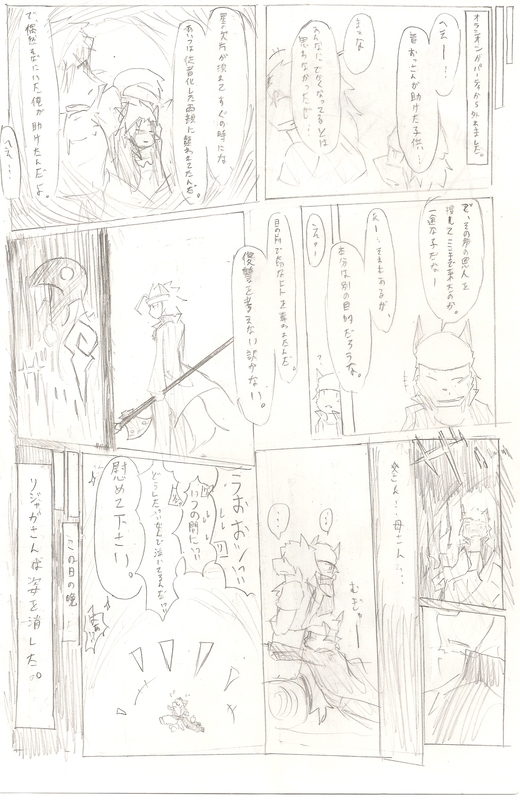 オラシオンがパーティから外れました。
へぇー…
昔おっさんが助けた子供…
まぁな
あんなにでかくなってるとは
思わなかったが…
星の欠片が決れてすぐの時にな、
あいつは
に襲われてたんだ。
で、偶然そばにいた俺が助けたんだよ。
へぇ…
で、その時の恩人を
探してここまで来たのか。
一途な子だなー
んー、それもあるが、
自分は別の目的だろうな。
え？
目の前で大切なヒトを奪われたんだ。
復讐を考えない訳がない。
父さん…母さん…
…
…
むぎゅー
うおおいいい
いつの間に!!
どうした!!なんで泣いてるんだ!?
慰めて下さい。
この日の晩
リジャがさんは姿を消した。